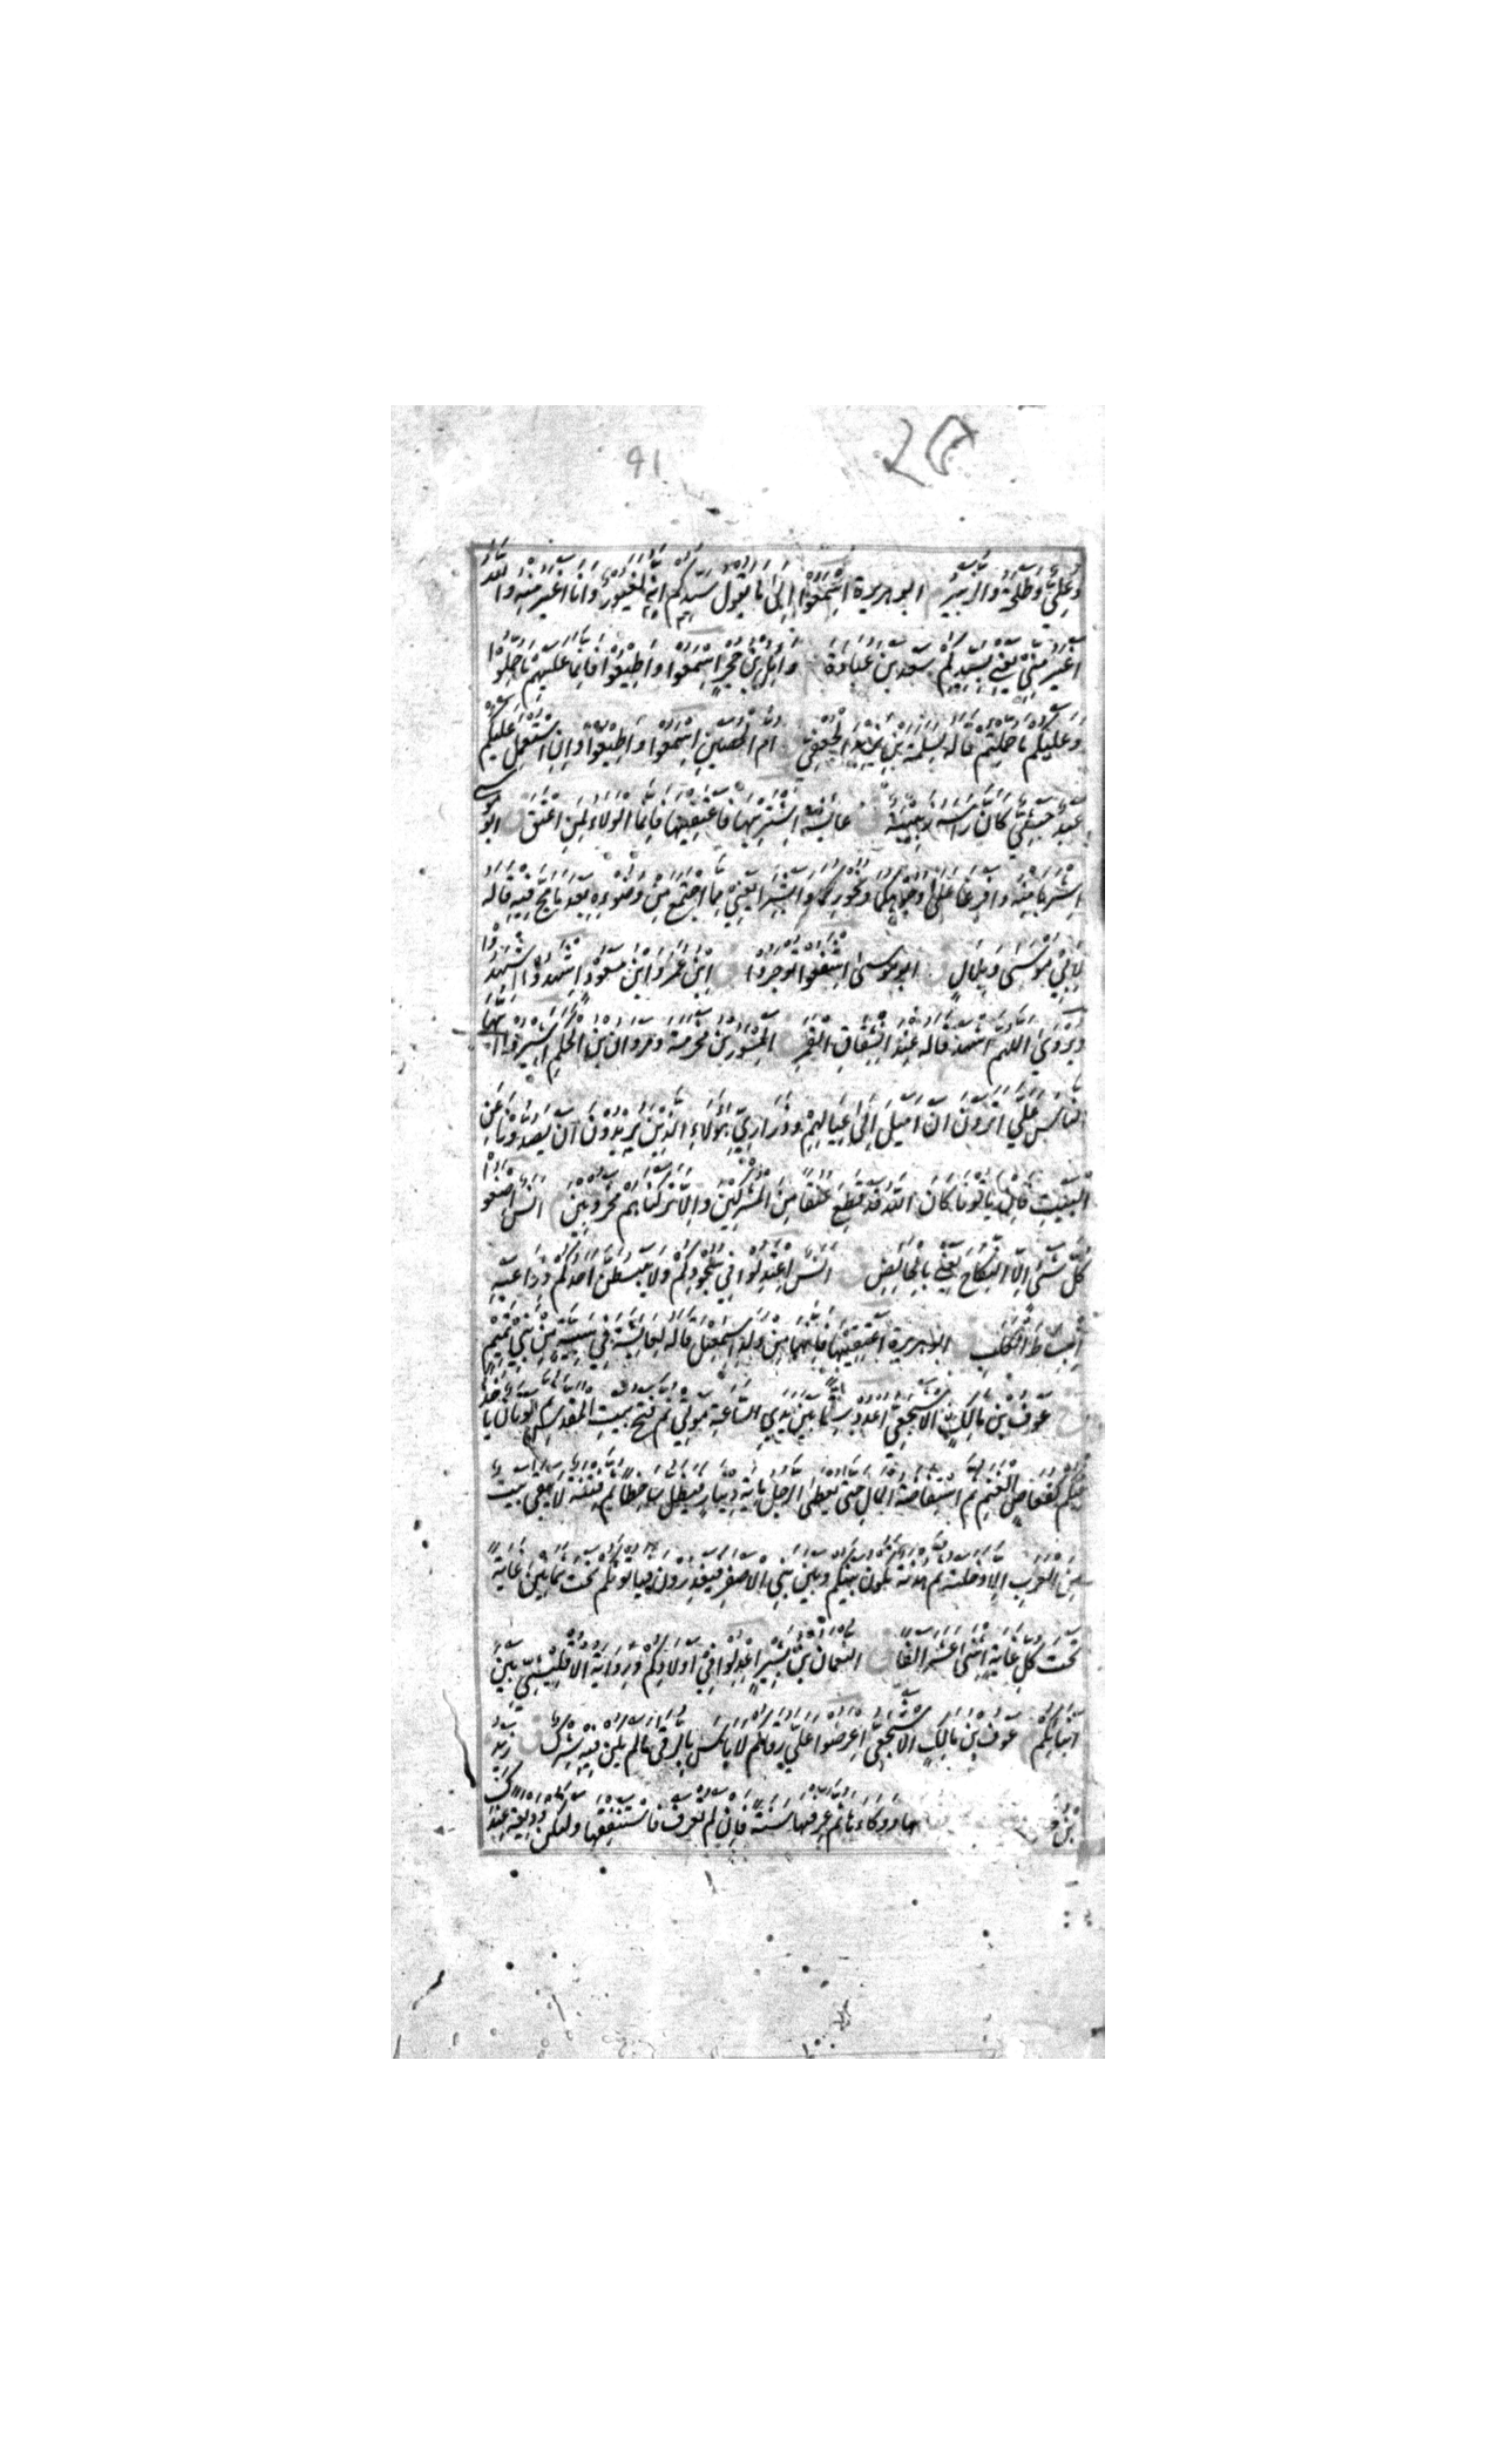 91
وَعَلِيٌّ وَطَلْحَةُ وَالزُّبَيْرُ ابو هريرة اسْمَعُوا اِلَى مَا يَقُولُ سَيِّدُكُمْ اِنَّهُ لَغَيُورٌ وَاَنَا اَغْيَرُ مِنْهُ وَاللّٰهُ
اَغْيَرُ مِنِّي يَعْنِي بِسَيِّدِكُمْ سَعْدَ بْنَ عُبَادَةَ وَائِلُ بْنُ حُجْرٍ اِسْمَعُوا وَاَطِيعُوا فَاِنَّمَا عَلَيْهِمْ مَا حُمِّلُوا
وَعَلَيْكُمْ مَا حُمِّلْتُمْ قَالَهُ لِسَلَمَةَ بْنِ يَزِيدَ الْجُعْفِيِّ ام الحصين اِسْمَعُوا وَاَطِيعُوا وَاِنِ اسْتُعْمِلَ عَلَيْكُمْ
عَبْدٌ حَبَشِيٌّ كَاَنَّ رَاْسَهُ زَبِيبَةٌ ق عائشة اِشْتَرِيهَا فَاَعْتِقِيهَا فَاِنَّمَا الْوَلَاءُ لِمَنْ اَعْتَقَ ق ابو موسى
اِشْرَبَا مِنْهُ وَاَفْرِغَا عَلَى وُجُوهِكُمَا وَنُحُورِكُمَا وَاَبْشِرَا يَعْنِي مِمَّا اجْتَمَعَ مِنْ وَضُوءِهِ بَعْدَ مَا مَجَّ فِيهِ قَالَهُ
لِاَبِي مُوسَى وَبِلَالٍ ق ابو موسى اشْفَعُوا تُوجَرُوا ق اِبْنُ عُمَرَ وَابْنُ مَسْعُودٍ اِشْهَدُوا اِشْهَدُوا
وَيُرْوَى اللّٰهُمَّ اشْهَدْ قَالَهُ عِنْدَ انْشِقَاقِ الْقَمَرِ ق الْمِسْوَرُ بْنُ مَخْرَمَةَ وَمَرْوَانُ بْنُ الْحَكَمِ اَشِيرُوا اَيُّهَا
النَّاسُ عَلَيَّ اَتَرَوْنَ اَنْ اَمِيلَ اِلَى عِيَالِهِمْ وَذَرَارِيِّ هٰؤُلَاءِ الَّذِينَ يُرِيدُونَ اَنْ يَصُدُّونَا عَنِ
الْبَيْتِ فَاِنْ يَاتُونَا كَانَ اللّٰهُ قَدْ قَطَعَ عُنُقًا مِنَ الْمُشْرِكِينَ وَاِلَّا تَرَكْنَاهُمْ مَحْرُوبِينَ انس اِصْنَعُوا
كُلَّ شَيْءٍ اِلَّا النِّكَاحَ يَعْنِي بِالْحَائِضِ ق انس اِعْتَدِلُوا فِي سُجُودِكُمْ وَلَا يَبْسُطَنَّ اَحَدُكُمْ ذِرَاعَيْهِ
اِنْبِسَاطَ الْكَلْبِ ابو هريرة اَعْتِقِيهَا فَاِنَّهَا مِنْ وَلَدِ اِسْمٰعِيلَ قَالَهُ لِعَائِشَةَ فِي سَبِيَّةٍ مِنْ بَنِي تَمِيمٍ
خ عَوْفُ بْنُ مَالِكٍ الْاَشْجَعِيُّ اُعْدُدْ سِتًّا بَيْنَ يَدَيِ السَّاعَةِ مَوْتِي ثُمَّ فَتْحُ بَيْتِ الْمَقْدِسِ ثُمَّ مُوتَانٌ يَأْخُذُ
فِيكُمْ كَقُعَاصِ الْغَنَمِ ثُمَّ اسْتِفَاضَةُ الْمَالِ حَتَّى يُعْطَى الرَّجُلُ مِائَةَ دِينَارٍ فَيَظَلُّ سَاخِطًا ثُمَّ فِتْنَةٌ لَا يَبْقَى بَيْتٌ
مِنَ الْعَرَبِ اِلَّا دَخَلَتْهُ ثُمَّ هُدْنَةٌ تَكُونُ بَيْنَكُمْ وَبَيْنَ بَنِي الْاَصْفَرِ فَيَغْدِرُونَ فَيَاتُونَكُمْ تَحْتَ ثَمَانِينَ غَايَةً
تَحْتَ كُلِّ غَايَةٍ اِثْنَى عَشَرَ اَلْفًا ق النُّعْمَانُ بْنُ بَشِيرٍ اِعْدِلُوا فِي اَوْلَادِكُمْ وَرِوَايَةُ الْاُقْلِيشِيِّ بَيْنَ
اَبْنَائِكُمْ عَوْفُ بْنُ مَالِكٍ الْاَشْجَعِيُّ اِعْرِضُوا عَلَيَّ رُقَاكُمْ لَا بَاسَ بِالرُّقَى مَا لَمْ يَكُنْ فِيهِ شِرْكٌ ق زَيْدُ
بْنُ هَا وَوِكَاءَهَا ثُمَّ عَرِّفْهَا سَنَةً فَاِنْ لَمْ تُعْرَفْ فَاسْتَنْفِقْهَا وَلْتَكُنْ وَدِيعَةً عِنْدَكَ